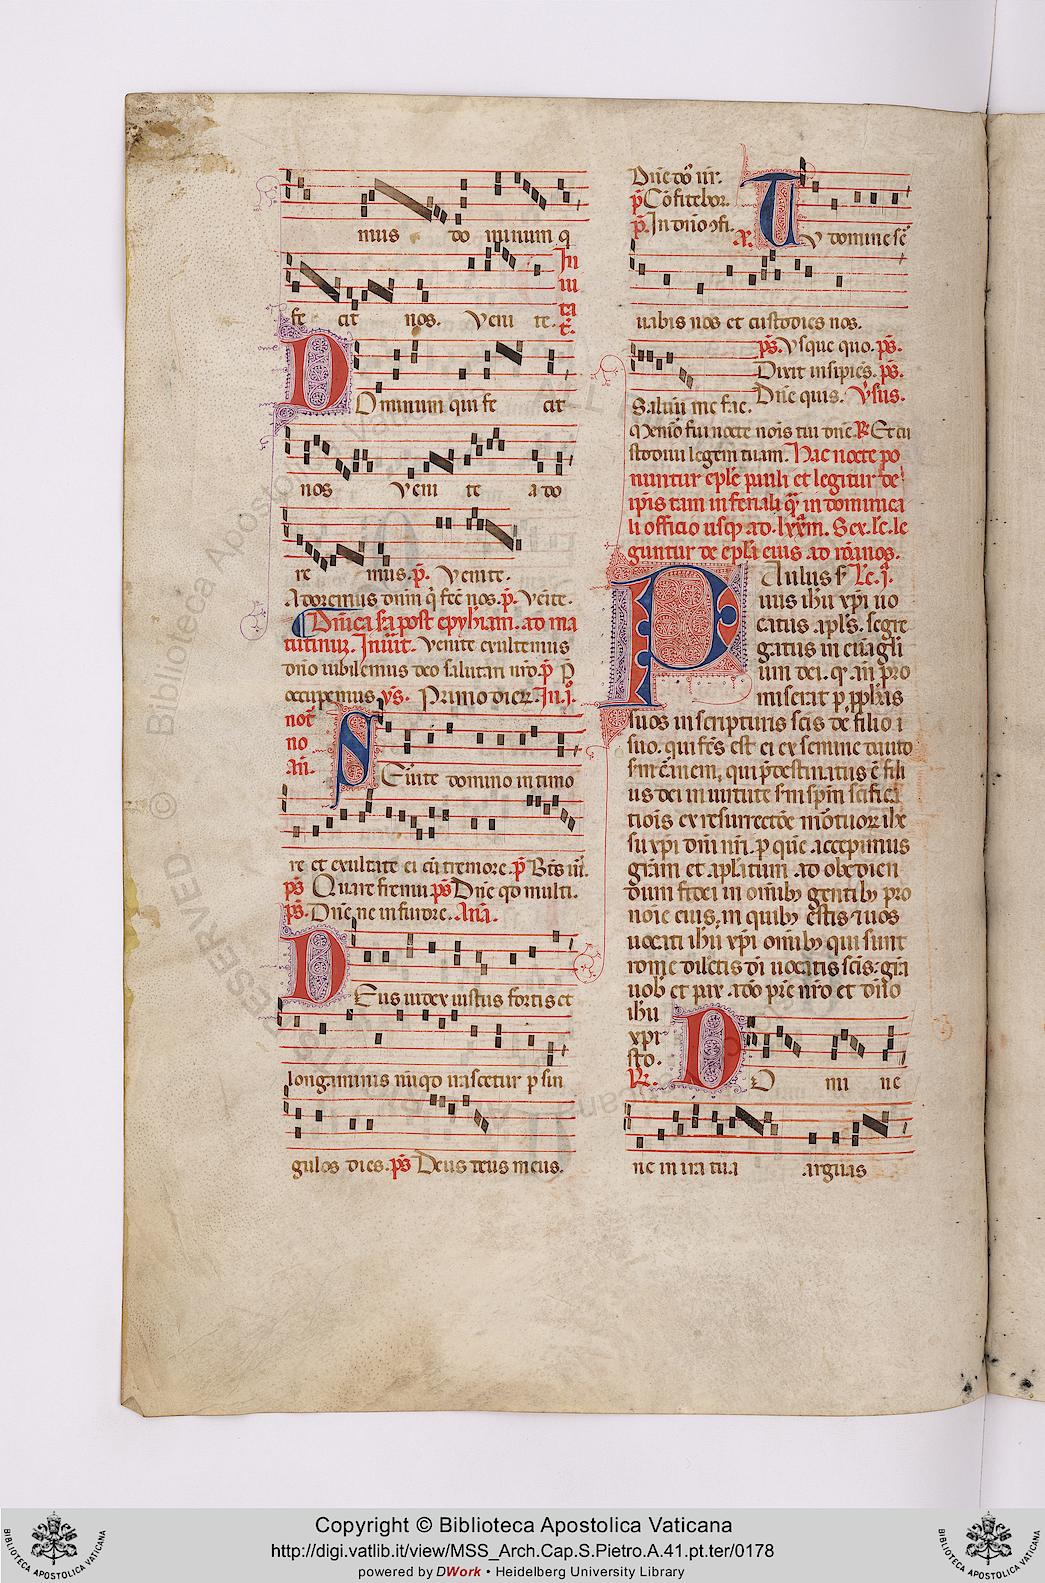 mus do minum q
fe cit nos. Veni te. In
ui
ta
t̄.
Dominum qui fe cit
nos Veni te ado
re mus. p̄. Venite.
Adoremus dnm̄ q̄ fec̄ nos. p̄. Veīte.
Dn̄ica ſa post epyh̄iam. ad ma
tutinū. Inuit̄. Venite exultemus
dn̄o iubilemus deo salutari nr̄o. p̄ P̄
occupemus. ys. Primo dier̄. In. j̄.
noc̄
no
an̄.
Seruite domino in timo
re et exultate ei cū tremore. p̄ Bt̄s uir̄.
p̄s Quare fremu. p̄s Dn̄e qd multi.
p̄s. Dn̄e ne in furore. Ana.
Deus iudex iustus fortis et
longanimis nūqd irascetur p sin
gulos dies. p̄s Deus deus meus.
Dn̄e do n̄r.
p̄ Cōfitebor.
p̄. In dn̄o ꝯfi.
a. Tu domine s̄e
uabis nos et custodies nos.
p̄s. Vsque quo. p̄s.
Dixit insipiēs. p̄s.
Saluū me fac. Dn̄e quis. V̄sus.
Memor fui nocte nois tui dn̄e ℟ Et cu
stodiui legem tuam. Hac nocte po
nuntur epl̄e pauli et legitur de
ip̄is tam in feriali q̄ in dominica
li officio usq; ad .lxx̄m. Sex. lc̄. le
guntur de epl̄a eius. ad rōanos.
Paulus ser Lc̄. j̄.
uus ih̄u xp̄i uo
catus apl̄s. segre
gatus in euāgli
um dei. q̄ an̄ pro
miserat p pphetas
suos in scripturis sc̄is de filio
suo. qui fc̄s est ei ex semine dauid
sm carnem, qui p̄destinatus ē fili
us dei in uirtute sm sp̄m sc̄ifica
tiōis ex resurrectōe mōtuor̄ ih̄e
su xp̄i dn̄i nr̄i. p quē accepimus
grām et apl̄atum ad obedien
dum fidei in omib; gentib; pro
noīe eius, in quib; estis ⁊ uos
uocati ih̄u xp̄i omib; qui sunt
rome dilectis di uocatis sc̄is: grā
uob̄ et pax .a do p̄re nr̄o et dn̄o
ih̄u
xp̄i
sto.
℟.
Do mi ne
ne in ira tua arguas
Copyright © Biblioteca Apostolica Vaticana
http://digi.vatlib.it/view/MSS_Arch.Cap.S.Pietro.A.41.pt.ter/0178
powered by DWork • Heidelberg University Library
BIBLIOTECA APOSTOLICA VATICANA
BIBLIOTECA APOSTOLICA VATICANA